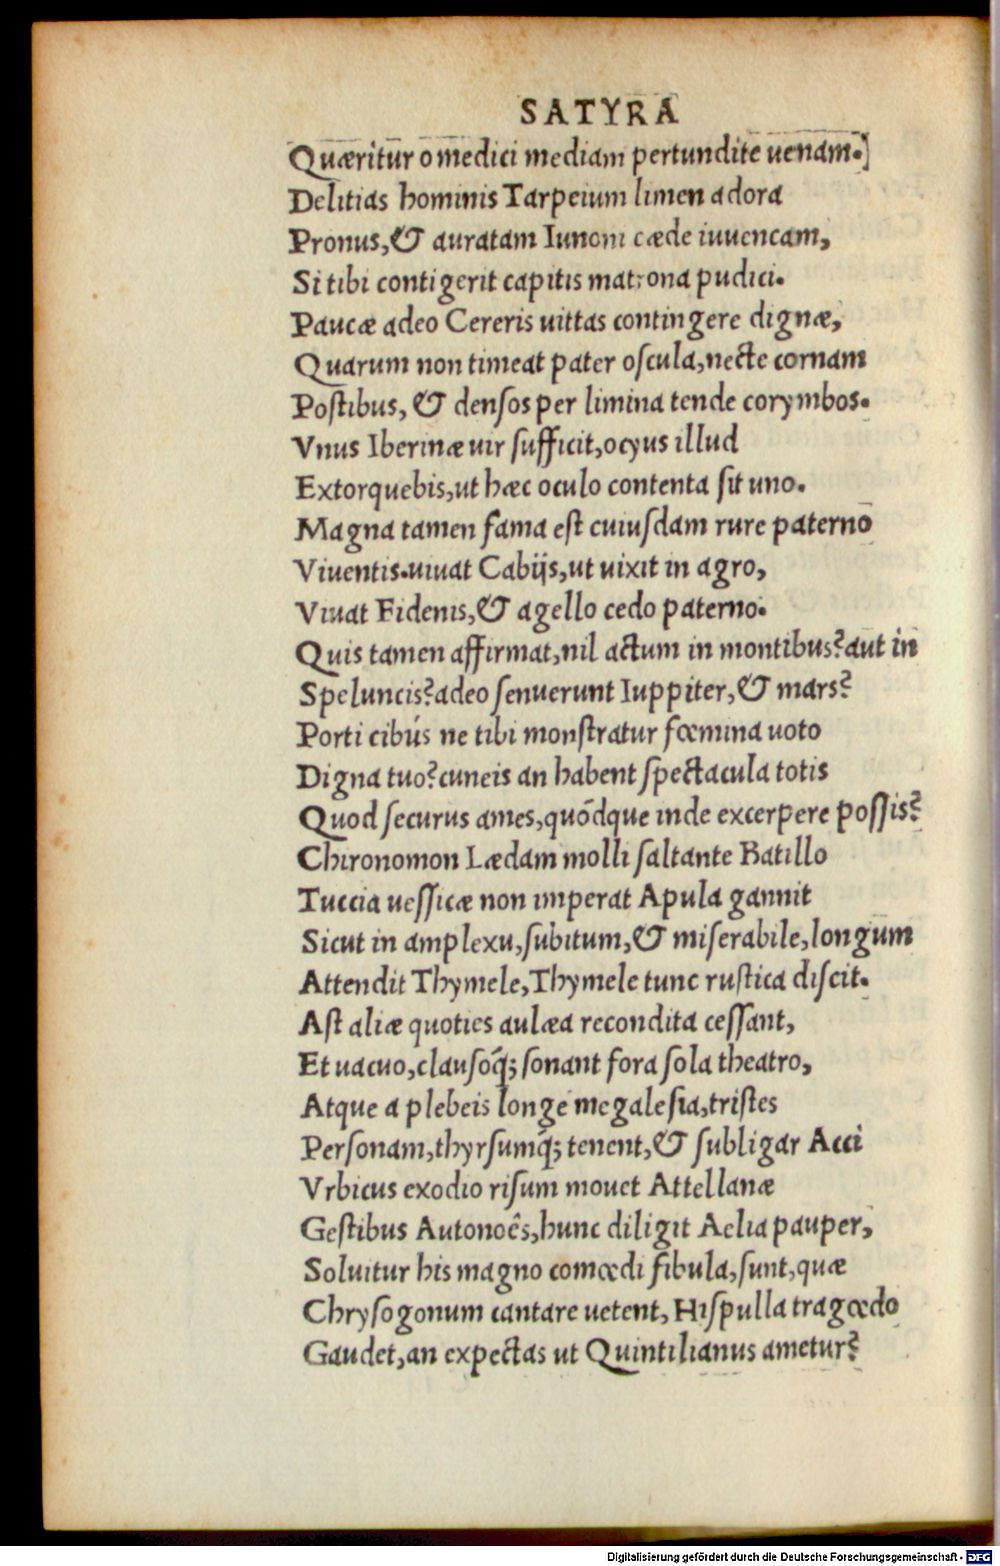 SATYRA
Quæritur o medici mediam pertundite uenam.]
Delitias hominis Tarpeium limen adora
Pronus, & auratam Iunoni cæde iuuencam,
Si tibi contigerit capitis matrona pudici.
Paucæ adeo Cereris uittas contingere dignæ,
Quarum non timeat pater oscula, necte cornam
Postibus, & densos per limina tende corymbos.
Vnus Iberinæ uir sufficit, ocyus illud
Extorquebis, ut hæc oculo contenta sit uno.
Magna tamen fama est cuiusdam rure paterno
Viuentis. uiuat Cabijs, ut uixit in agro,
Viuat Fidenis, & agello cedo paterno.
Quis tamen affirmat, nil actum in montibus? aut in
Speluncis? adeo senuerunt Iuppiter, & mars?
Porti cibús ne tibi monstratur fœmina uoto
Digna tuo? cuneis an habent spectacula totis
Quod securus ames, quódque inde excerpere possis?
Chironomon Lædam molli saltante Batillo
Tuccia uessicæ non imperat Apula gannit
Sicut in amplexu, subitum, & miserabile, longum
Attendit Thymele, Thymele tunc rustica discit.
Ast aliæ quoties aulæa recondita cessant,
Et uacuo, clausoq́; sonant fora sola theatro,
Atque a plebeis longe megalesia, tristes
Personam, thyrsumq́; tenent, & subligar Acci
Vrbicus exodio risum mouet Attellanæ
Gestibus Autonoês, hunc diligit Aelia pauper,
Soluitur his magno comœdi fibula, sunt, quæ
Chrysogonum cantare uetent, Hispulla tragœdo
Gaudet, an expectas ut Quintilianus ametur?
Digitalisierung gefördert durch die Deutsche Forschungsgemeinschaft - DFG